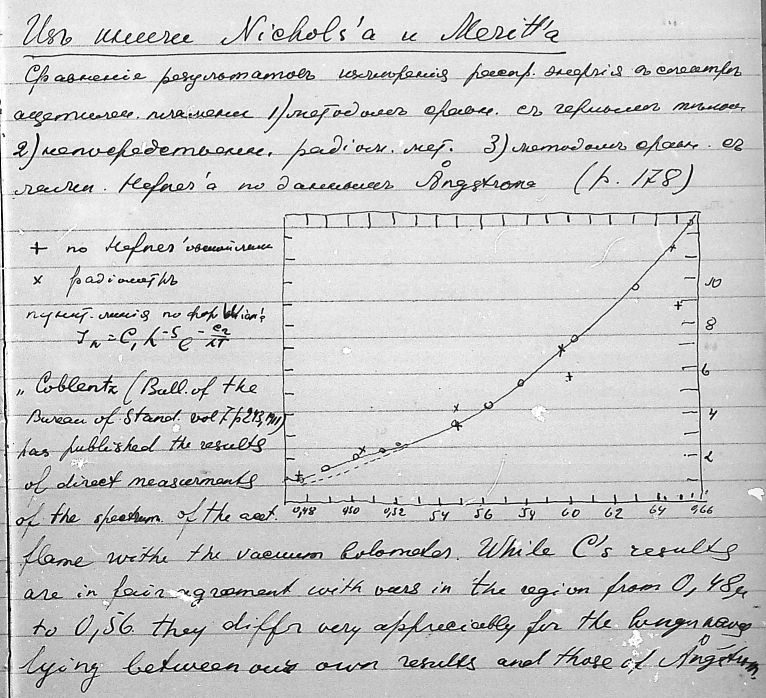 Изъ книги Nichols'a и Merit'a
Сравненiе результатовъ измѣренiя распр. энергiя въ спектрѣ
ацетилен. пламени 1) методомъ сравн. съ чернымъ тѣломъ
2) непосредственн. радiом. мет. 3) методомъ сравн. съ
лампы. Hefner'a по даннымъ Ångstroma (p. 178)
+ по Hefner'овской
x радiометръ
пункт. линiя по фор. Wien'a
J_λ = C_1 λ^-5 e^-c_2/λT
10
8
6
4
2
„ Coblentz (Bull. of the
Bureau of Stand. vol 7 p 243, 1911)
has published the results
of direct measurments
of the spectrum of the acet.
0,48 050 0,52 54 56 54 60 62 64 0,66
flame withe the vacuum bolometer. While C's results
are in fair agrement with ours in the region from 0,48μ
to 0,56 they diffr very appreciably for the longer waves
lying between ours own results and those of Ångstrom.